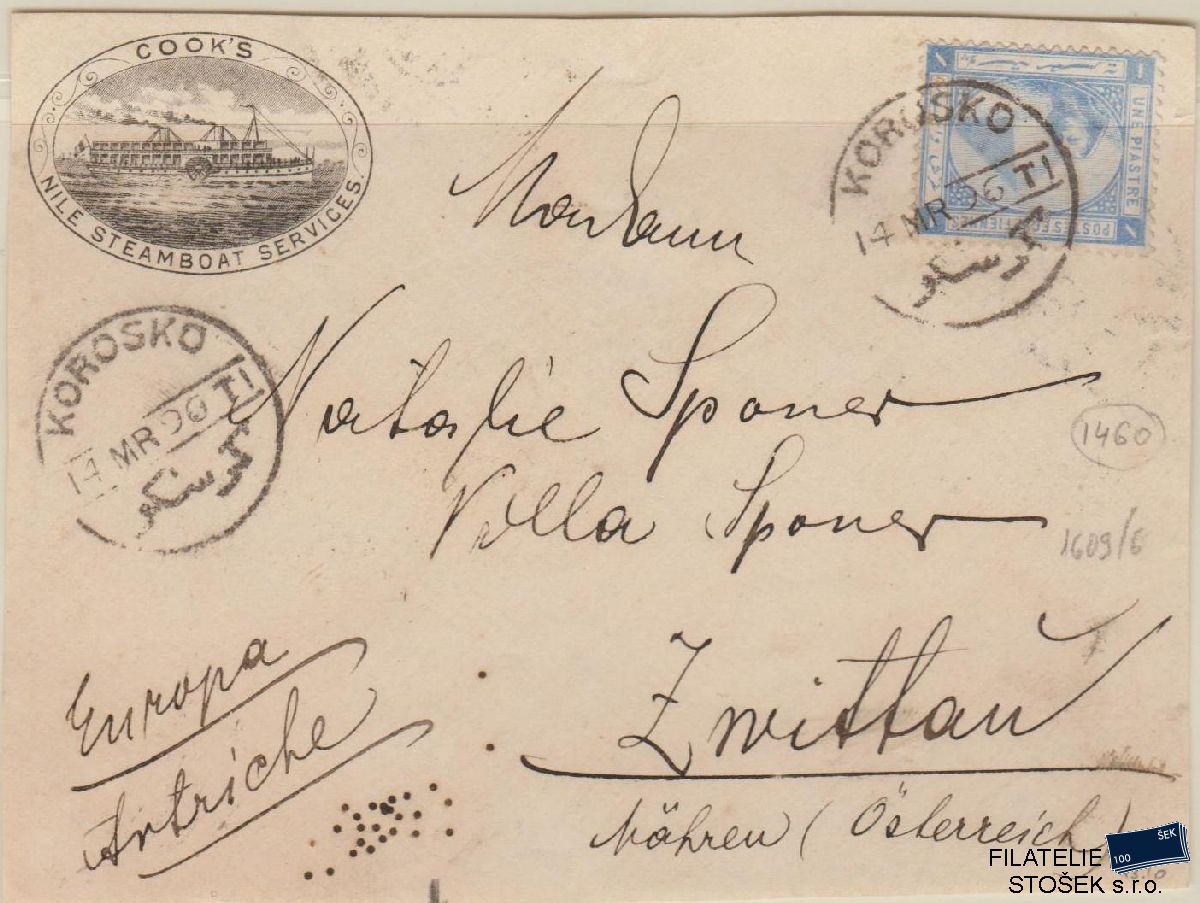 COOK'S
NILE STEAMBOAT SERVICES.
UNE PIASTRE
KOROSKO
14 MR 96 TI
كرسكو
Madame
KOROSKO
14 MR 96 TI
كرسكو
Natalie Sponer
Villa Sponer
1460
1609/6
Zwittau
Mähren (Österreich)
Europa
Autriche
FILATELIE
STOŠEK s.r.o.
100 ŠEK